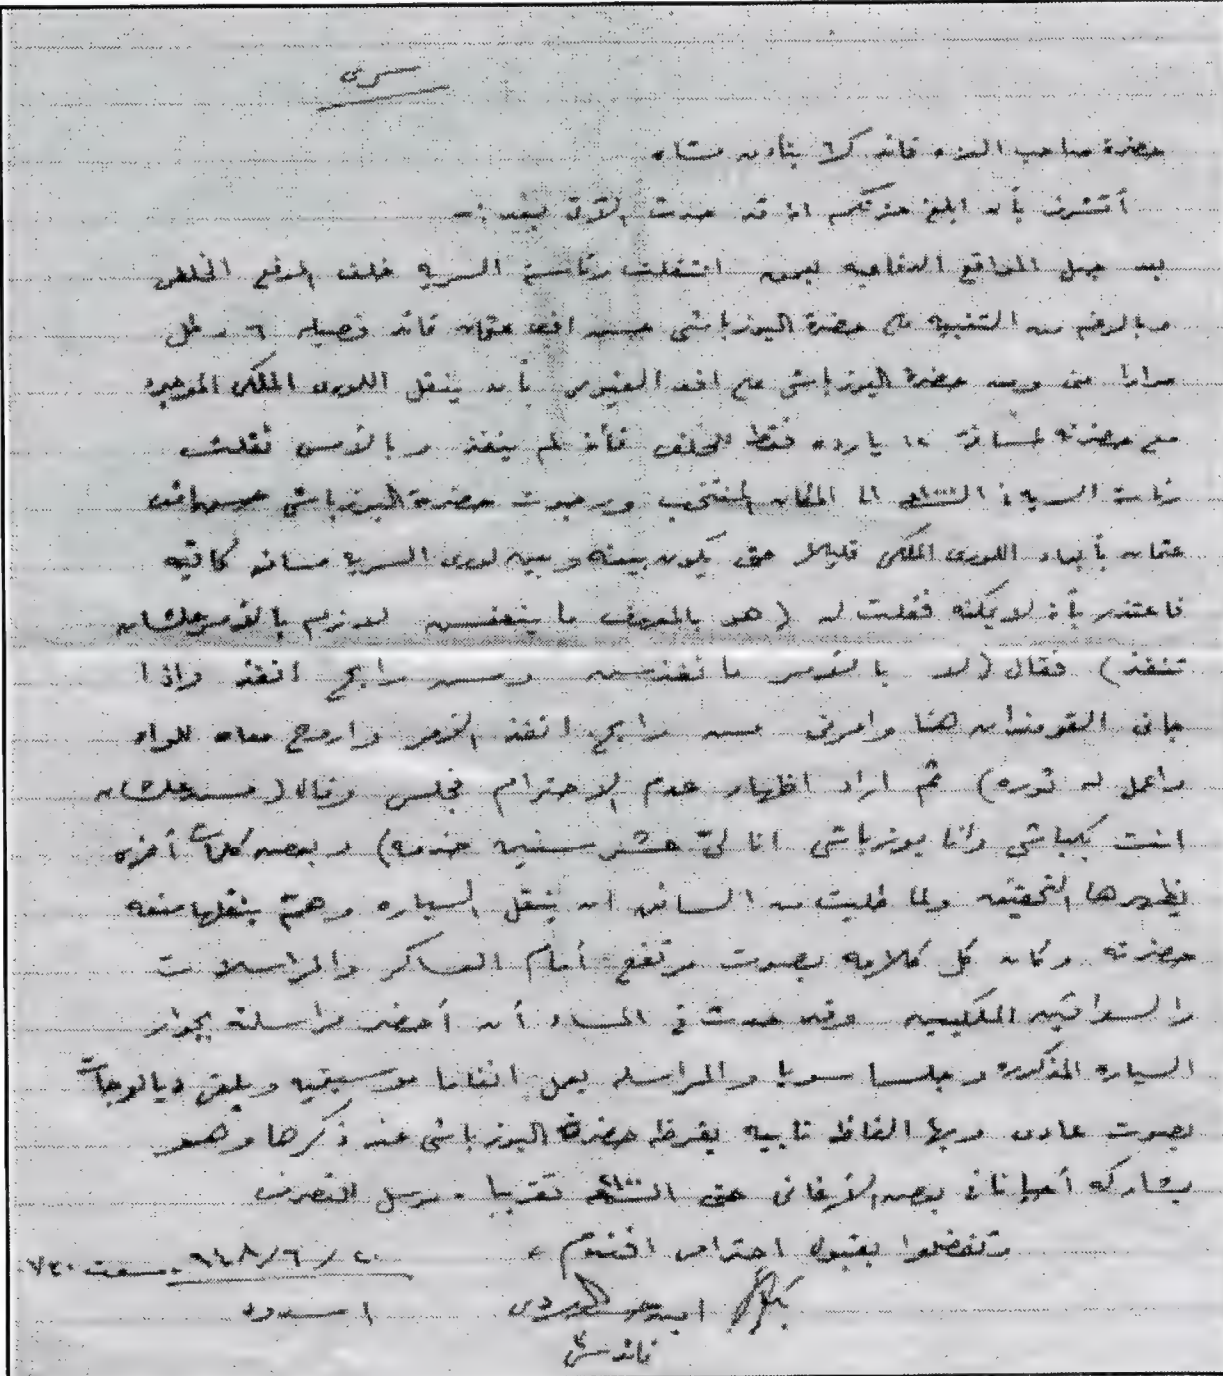 سرى
حضرة صاحب العزه قائد ك٦ بنادق مشاه
أتشرف بأن ابلغ عزتكم انه قد حدث الآتى بعد :-
بعد عمل المواقع الدفاعيه ليوم انتقلت رئاسة السريه خلف الموقع الخلفى
وبالرغم من التنبيه على حضرة اليوزباشى حسن افندى عثمان قائد فصيله ٦
مرارا من حضرة اليوزباشى على افندى بأن ينقل اللورى الملكى الموجود
مع حضرته لمسافة يارده فقط للخلف فأنه لم ينفذ وبالأمس نقلت
رئاسة السريه فى الساعة الى المكان المنتخب ورجوت حضرة اليوزباشى حسن افندى
عثمان بأبعاد اللورى الملكى قليلا حتى يكون بينه وبين لورى السريه مسافه كافيه
فاعتذر بأنه لا يمكنه فقلت له (هو بالمعروف ما ينفعش لازم بالأمر علشان
تنفذ) فقال (لا بالأمر ما نفذتش ومش رايح انفذ واذا
جانى القومندان هنا وامرنى مش رايح انفذ الأمر واروح معاه للواء
واعمل له ثوره) ثم اراد اظهار عدم الاحترام فجلس وقال (مش علشان
انت بكباشى وانا يوزباشى انا لىّ عشر سنين خدمه) وبعض كلمات أخرى
يظهرها التحقيق ولما طلبت من السائق ان ينقل السياره وهمّ بنقلها منعه
حضرته وكان كل كلامه بصوت مرتفع أمام العساكر والمراسلات
والسواقين الملكيين وقد حدث فى المساء أن أحضر مراسلته بجوار
السياره المذكوره وجلسا سويا والمراسله يعمل انغاما موسيقيه ويلقى ديالوجات
بصوت عادى وبها الفاظ نابيه يقرظه حضرة اليوزباشى عند ذكرها وهو
يشاركه أحيانا فى بعض الأغانى حتى الساعة تقريبا - مرسل للتصرف
وتفضلوا بقبول احترامى افندم ،
٢٠/٦/٩٤٨ سعت ٠٧٣٠
بكباشى
اسدود
قائد